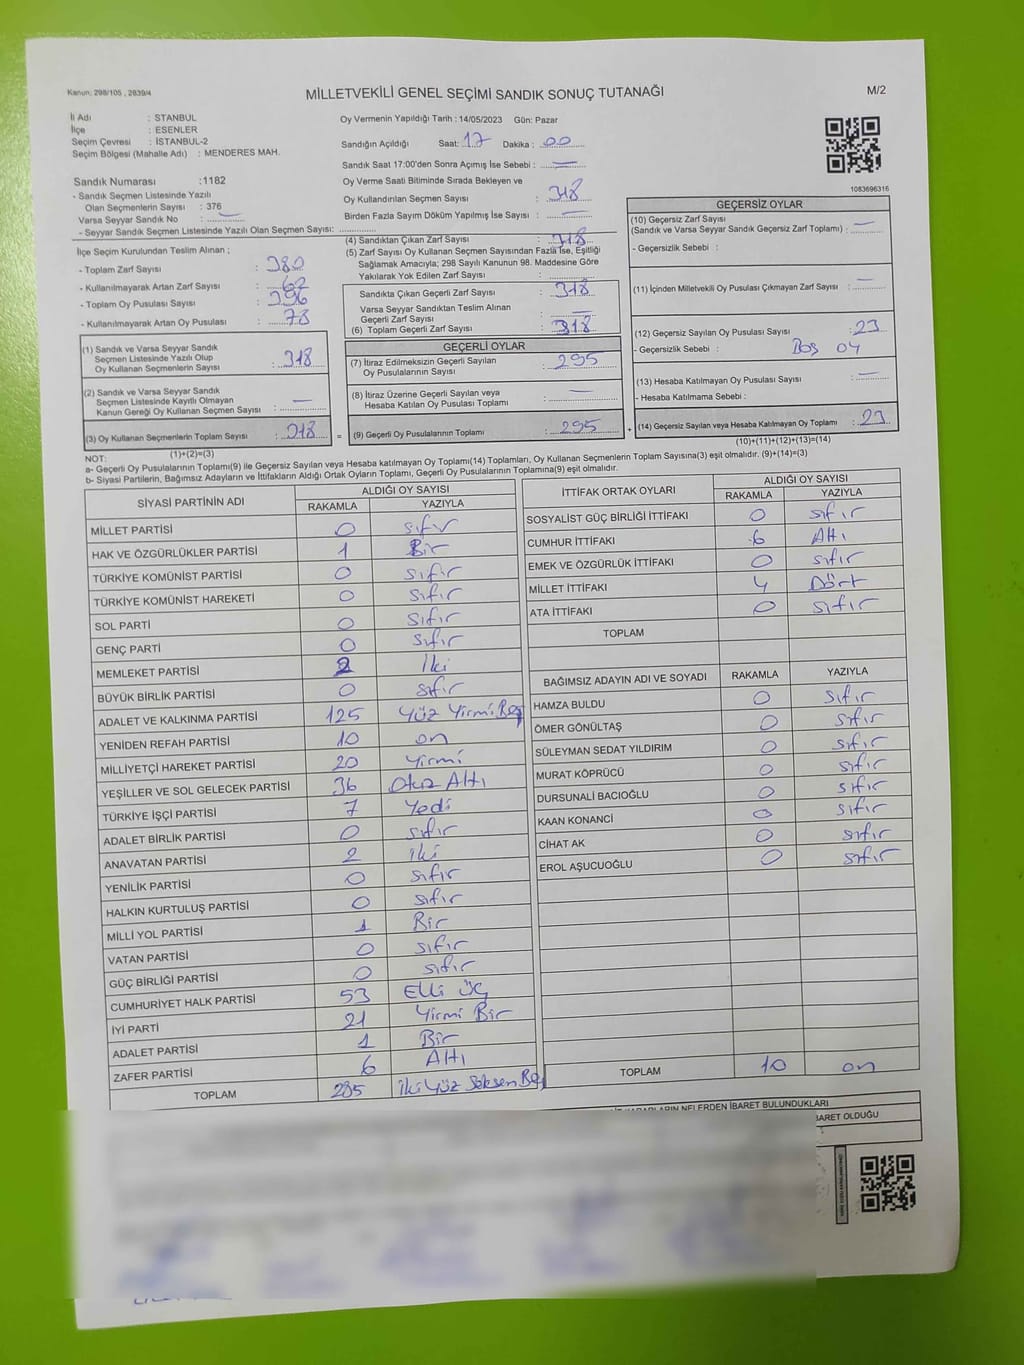 Kanun: 298/105 , 2839/4
MİLLETVEKİLİ GENEL SEÇİMİ SANDIK SONUÇ TUTANAĞI
M/2
İl Adı : STANBUL
İlçe : ESENLER
Seçim Çevresi : İSTANBUL-2
Seçim Bölgesi (Mahalle Adı) : MENDERES MAH.
Oy Vermenin Yapıldığı Tarih : 14/05/2023 Gün: Pazar
Sandığın Açıldığı Saat: 17 Dakika : 00
Sandık Saat 17:00'den Sonra Açımış İse Sebebi : —
Oy Verme Saati Bitiminde Sırada Bekleyen ve
Oy Kullandırılan Seçmen Sayısı : 318
Birden Fazla Sayım Döküm Yapılmış İse Sayısı : —
1083696316
Sandık Numarası :1182
- Sandık Seçmen Listesinde Yazılı
Olan Seçmenlerin Sayısı : 376
Varsa Seyyar Sandık No : —
- Seyyar Sandık Seçmen Listesinde Yazılı Olan Seçmen Sayısı:
İlçe Seçim Kurulundan Teslim Alınan ;
- Toplam Zarf Sayısı : 380
- Kullanılmayarak Artan Zarf Sayısı : 62
- Toplam Oy Pusulası Sayısı : 396
- Kullanılmayarak Artan Oy Pusulası : 78
(1) Sandık ve Varsa Seyyar Sandık
Seçmen Listesinde Yazılı Olup
Oy Kullanan Seçmenlerin Sayısı : 318
(2) Sandık ve Varsa Seyyar Sandık
Seçmen Listesinde Kayıtlı Olmayan
Kanun Gereği Oy Kullanan Seçmen Sayısı : —
(3) Oy Kullanan Seçmenlerin Toplam Sayısı : 318
(1)+(2)=(3)
(4) Sandıktan Çıkan Zarf Sayısı : 318
(5) Zarf Sayısı Oy Kullanan Seçmen Sayısından Fazla İse, Eşitliği
Sağlamak Amacıyla; 298 Sayılı Kanunun 98. Maddesine Göre
Yakılarak Yok Edilen Zarf Sayısı :
Sandıkta Çıkan Geçerli Zarf Sayısı : 318
Varsa Seyyar Sandıktan Teslim Alınan
Geçerli Zarf Sayısı : —
(6) Toplam Geçerli Zarf Sayısı : 318
GEÇERLİ OYLAR
(7) İtiraz Edilmeksizin Geçerli Sayılan
Oy Pusulalarının Sayısı : 295
(8) İtiraz Üzerine Geçerli Sayılan veya
Hesaba Katılan Oy Pusulası Toplamı : —
= (9) Geçerli Oy Pusulalarının Toplamı : 295
GEÇERSİZ OYLAR
(10) Geçersiz Zarf Sayısı
(Sandık ve Varsa Seyyar Sandık Geçersiz Zarf Toplamı) : —
- Geçersizlik Sebebi :
(11) İçinden Milletvekili Oy Pusulası Çıkmayan Zarf Sayısı : —
(12) Geçersiz Sayılan Oy Pusulası Sayısı : 23
- Geçersizlik Sebebi : Boş oy
(13) Hesaba Katılmayan Oy Pusulası Sayısı : —
- Hesaba Katılmama Sebebi :
+ (14) Geçersiz Sayılan veya Hesaba Katılmayan Oy Toplamı : 23
(10)+(11)+(12)+(13)=(14)
NOT:
a- Geçerli Oy Pusulalarının Toplamı(9) ile Geçersiz Sayılan veya Hesaba katılmayan Oy Toplamı(14) Toplamları, Oy Kullanan Seçmenlerin Toplam Sayısına(3) eşit olmalıdır. (9)+(14)=(3)
b- Siyasi Partilerin, Bağımsız Adayların ve İttifakların Aldığı Ortak Oyların Toplamı, Geçerli Oy Pusulalarının Toplamına(9) eşit olmalıdır.
SİYASİ PARTİNİN ADI ALDIĞI OY SAYISI
RAKAMLA YAZIYLA
MİLLET PARTİSİ 0 sıfır
HAK VE ÖZGÜRLÜKLER PARTİSİ 1 Bir
TÜRKİYE KOMÜNİST PARTİSİ 0 sıfır
TÜRKİYE KOMÜNİST HAREKETİ 0 sıfır
SOL PARTİ 0 sıfır
GENÇ PARTİ 0 sıfır
MEMLEKET PARTİSİ 2 İki
BÜYÜK BİRLİK PARTİSİ 0 sıfır
ADALET VE KALKINMA PARTİSİ 125 Yüz Yirmi Beş
YENİDEN REFAH PARTİSİ 10 on
MİLLİYETÇİ HAREKET PARTİSİ 20 Yirmi
YEŞİLLER VE SOL GELECEK PARTİSİ 36 Otuz Altı
TÜRKİYE İŞÇİ PARTİSİ 7 Yedi
ADALET BİRLİK PARTİSİ 0 sıfır
ANAVATAN PARTİSİ 2 iki
YENİLİK PARTİSİ 0 sıfır
HALKIN KURTULUŞ PARTİSİ 0 sıfır
MİLLİ YOL PARTİSİ 1 Bir
VATAN PARTİSİ 0 sıfır
GÜÇ BİRLİĞİ PARTİSİ 0 sıfır
CUMHURİYET HALK PARTİSİ 53 Elli Üç
İYİ PARTİ 21 Yirmi Bir
ADALET PARTİSİ 1 Bir
ZAFER PARTİSİ 6 Altı
TOPLAM 285 iki Yüz Seksen Beş
İTTİFAK ORTAK OYLARI ALDIĞI OY SAYISI
RAKAMLA YAZIYLA
SOSYALİST GÜÇ BİRLİĞİ İTTİFAKI 0 sıfır
CUMHUR İTTİFAKI 6 Altı
EMEK VE ÖZGÜRLÜK İTTİFAKI 0 sıfır
MİLLET İTTİFAKI 4 Dört
ATA İTTİFAKI 0 sıfır
TOPLAM
BAĞIMSIZ ADAYIN ADI VE SOYADI RAKAMLA YAZIYLA
HAMZA BULDU 0 sıfır
ÖMER GÖNÜLTAŞ 0 sıfır
SÜLEYMAN SEDAT YILDIRIM 0 sıfır
MURAT KÖPRÜCÜ 0 sıfır
DURSUNALİ BACIOĞLU 0 sıfır
KAAN KONANCİ 0 sıfır
CİHAT AK 0 sıfır
EROL AŞUCUOĞLU 0 sıfır
TOPLAM 10 on
NELERDEN İBARET BULUNDUKLARI
İBARET OLDUĞU